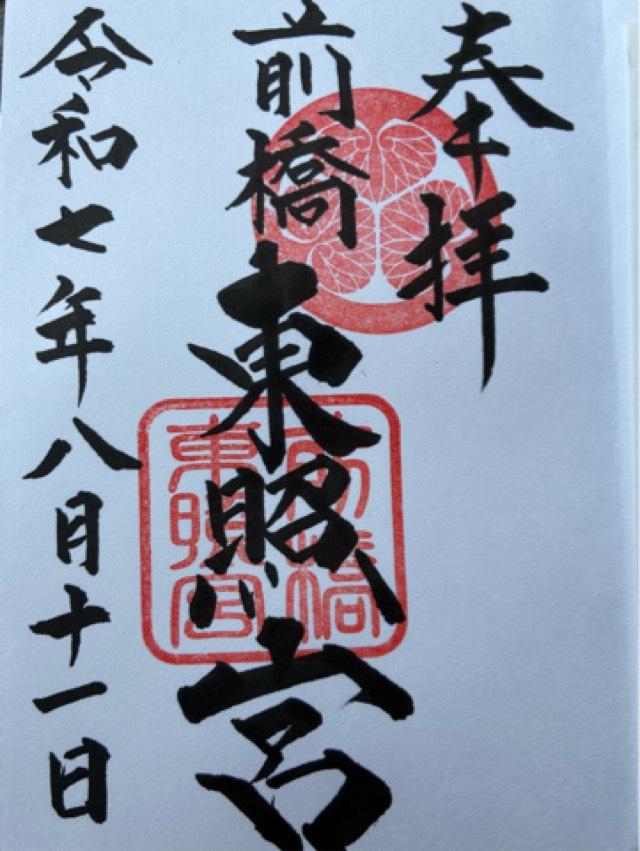 奉拝
前橋東照宮
前橋東照宮
令和七年八月十一日